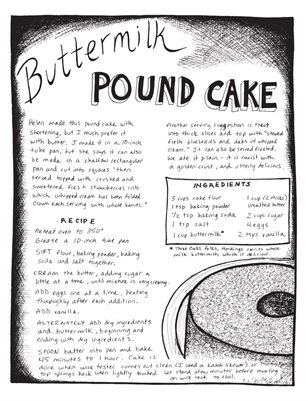 Buttermilk
POUND CAKE
Helen made this pound cake with
shortening, but I much prefer it
with butter. I made it in a 10-inch
tube pan, but she says it can also
be made in a shallow rectangular
pan and cut into squares "then
served topped with crushed and
sweetened, fresh strawberries into
which whipped cream has been folded.
Crown each serving with whole berries."
Another serving suggestion is to cut
into thick slices and top with "stewed
first blueberries and dabs of whipped
cream." It can also be served frosted.
We ate it plain - it is moist with
a golden crust, and utterly delicious.
INGREDIENTS
3 cups cake flour
1 tsp baking powder
1/2 tsp baking soda
1 tsp salt
1 cup buttermilk*
1 cup (2 sticks)
unsalted butter
2 cups sugar
4 eggs
2 tsps vanilla
* Three Oaks folks, Hardings carries whole
milk buttermilk which is delicious.
RECIPE
Preheat oven to 350°
Grease a 10-inch tube pan
SIFT flour, baking powder, baking
soda and salt together.
CREAM the butter, adding sugar a
little at a time, until mixture is very creamy.
ADD eggs one at a time, beating
thoroughly after each addition.
ADD vanilla.
ALTERNATELY ADD dry ingredients
and buttermilk, beginning and
ending with dry ingredients.
SPOON batter into pan and bake
45 minutes to 1 hour. Cake is
done when wire tester comes out clean (I used a kabob skewer) or
top springs back when lightly touched. Let stand a few minutes before inverting
on wire rack to cool.